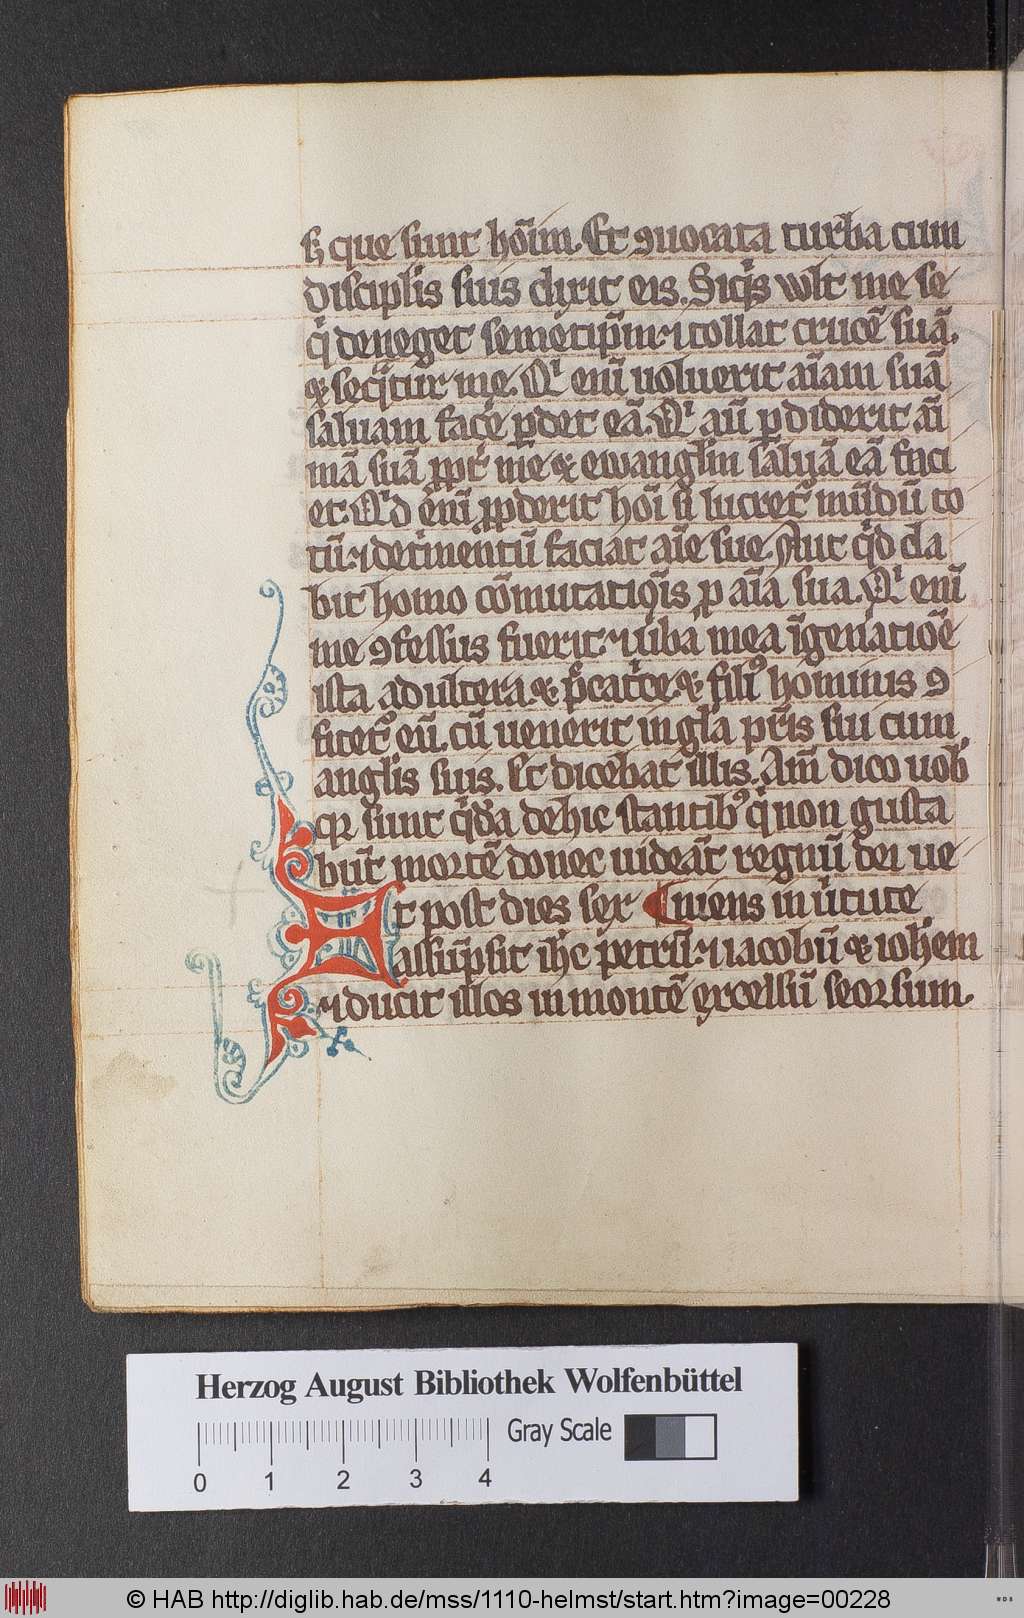 sꝫ que sunt hoı̅m. Et ꝯuocata turba cum
discipl̅is suis dixit eis. Siqͥs wlt me se
qͥ deneget semetip̅m ⁊ tollat cruce̅ sua̅.
& seqͣtur me. Qͥ eni̅ uoluerit ai̅am sua̅
saluam face̅ ꝑdet ea̅. Qͥ au̅ ꝑdiderit ai̅
mam sua̅ ꝓpt̅ me & ewangliu̅ salua̅ ea̅ faci
et. Qͥd eni̅ ꝓderit hoi̅ si lucret̅ mu̅du̅ to
tu̅ ⁊ det̅mentu̅ faciat ai̅e sue. Aut qͥd da
bit homo co̅mutatiōis ꝓ ai̅a sua. Qͥ eni̅
me ꝯfessus fuerit ⁊ u̅ba mea i̅ gen̅atio̅e
ista adultera & p̅catͥce & filiꝰ hominis ꝯ
fitet̅ eu̅. cu̅ uenerit in gl̅a pr̅is sui cum
angl̅is suis. Et dicebat illis. Am̅ dico uob̅
qꝛ sunt qͥda̅ de hic stantibꝰ qͥ non gusta
bu̅t morte̅ donec uidea̅t regnu̅ dei ue
Et post dies sex niens in u̅tute
assu̅psit ih̅c petru̅ ⁊ iacobu̅ & ioh̅em
⁊ ducit illos in monte̅ excelsu̅ seorsum.
Herzog August Bibliothek Wolfenbüttel
Gray Scale
0 1 2 3 4
© HAB http://diglib.hab.de/mss/1110-helmst/start.htm?image=00228